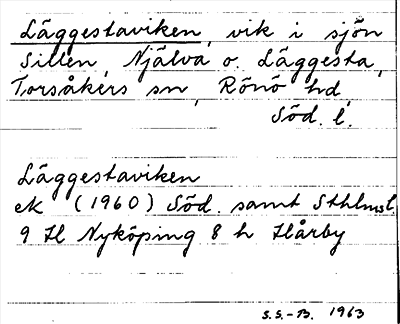 Läggestaviken, vik i sjön
Sillen, Njälva o. Läggesta,
Torsåkers sn, Rönö hd,
Söd. l.
Läggestaviken
ek (1960) Söd. samt Sthlmsl.
9 H Nyköping 8 h Hårby
S.S.-B. 1963